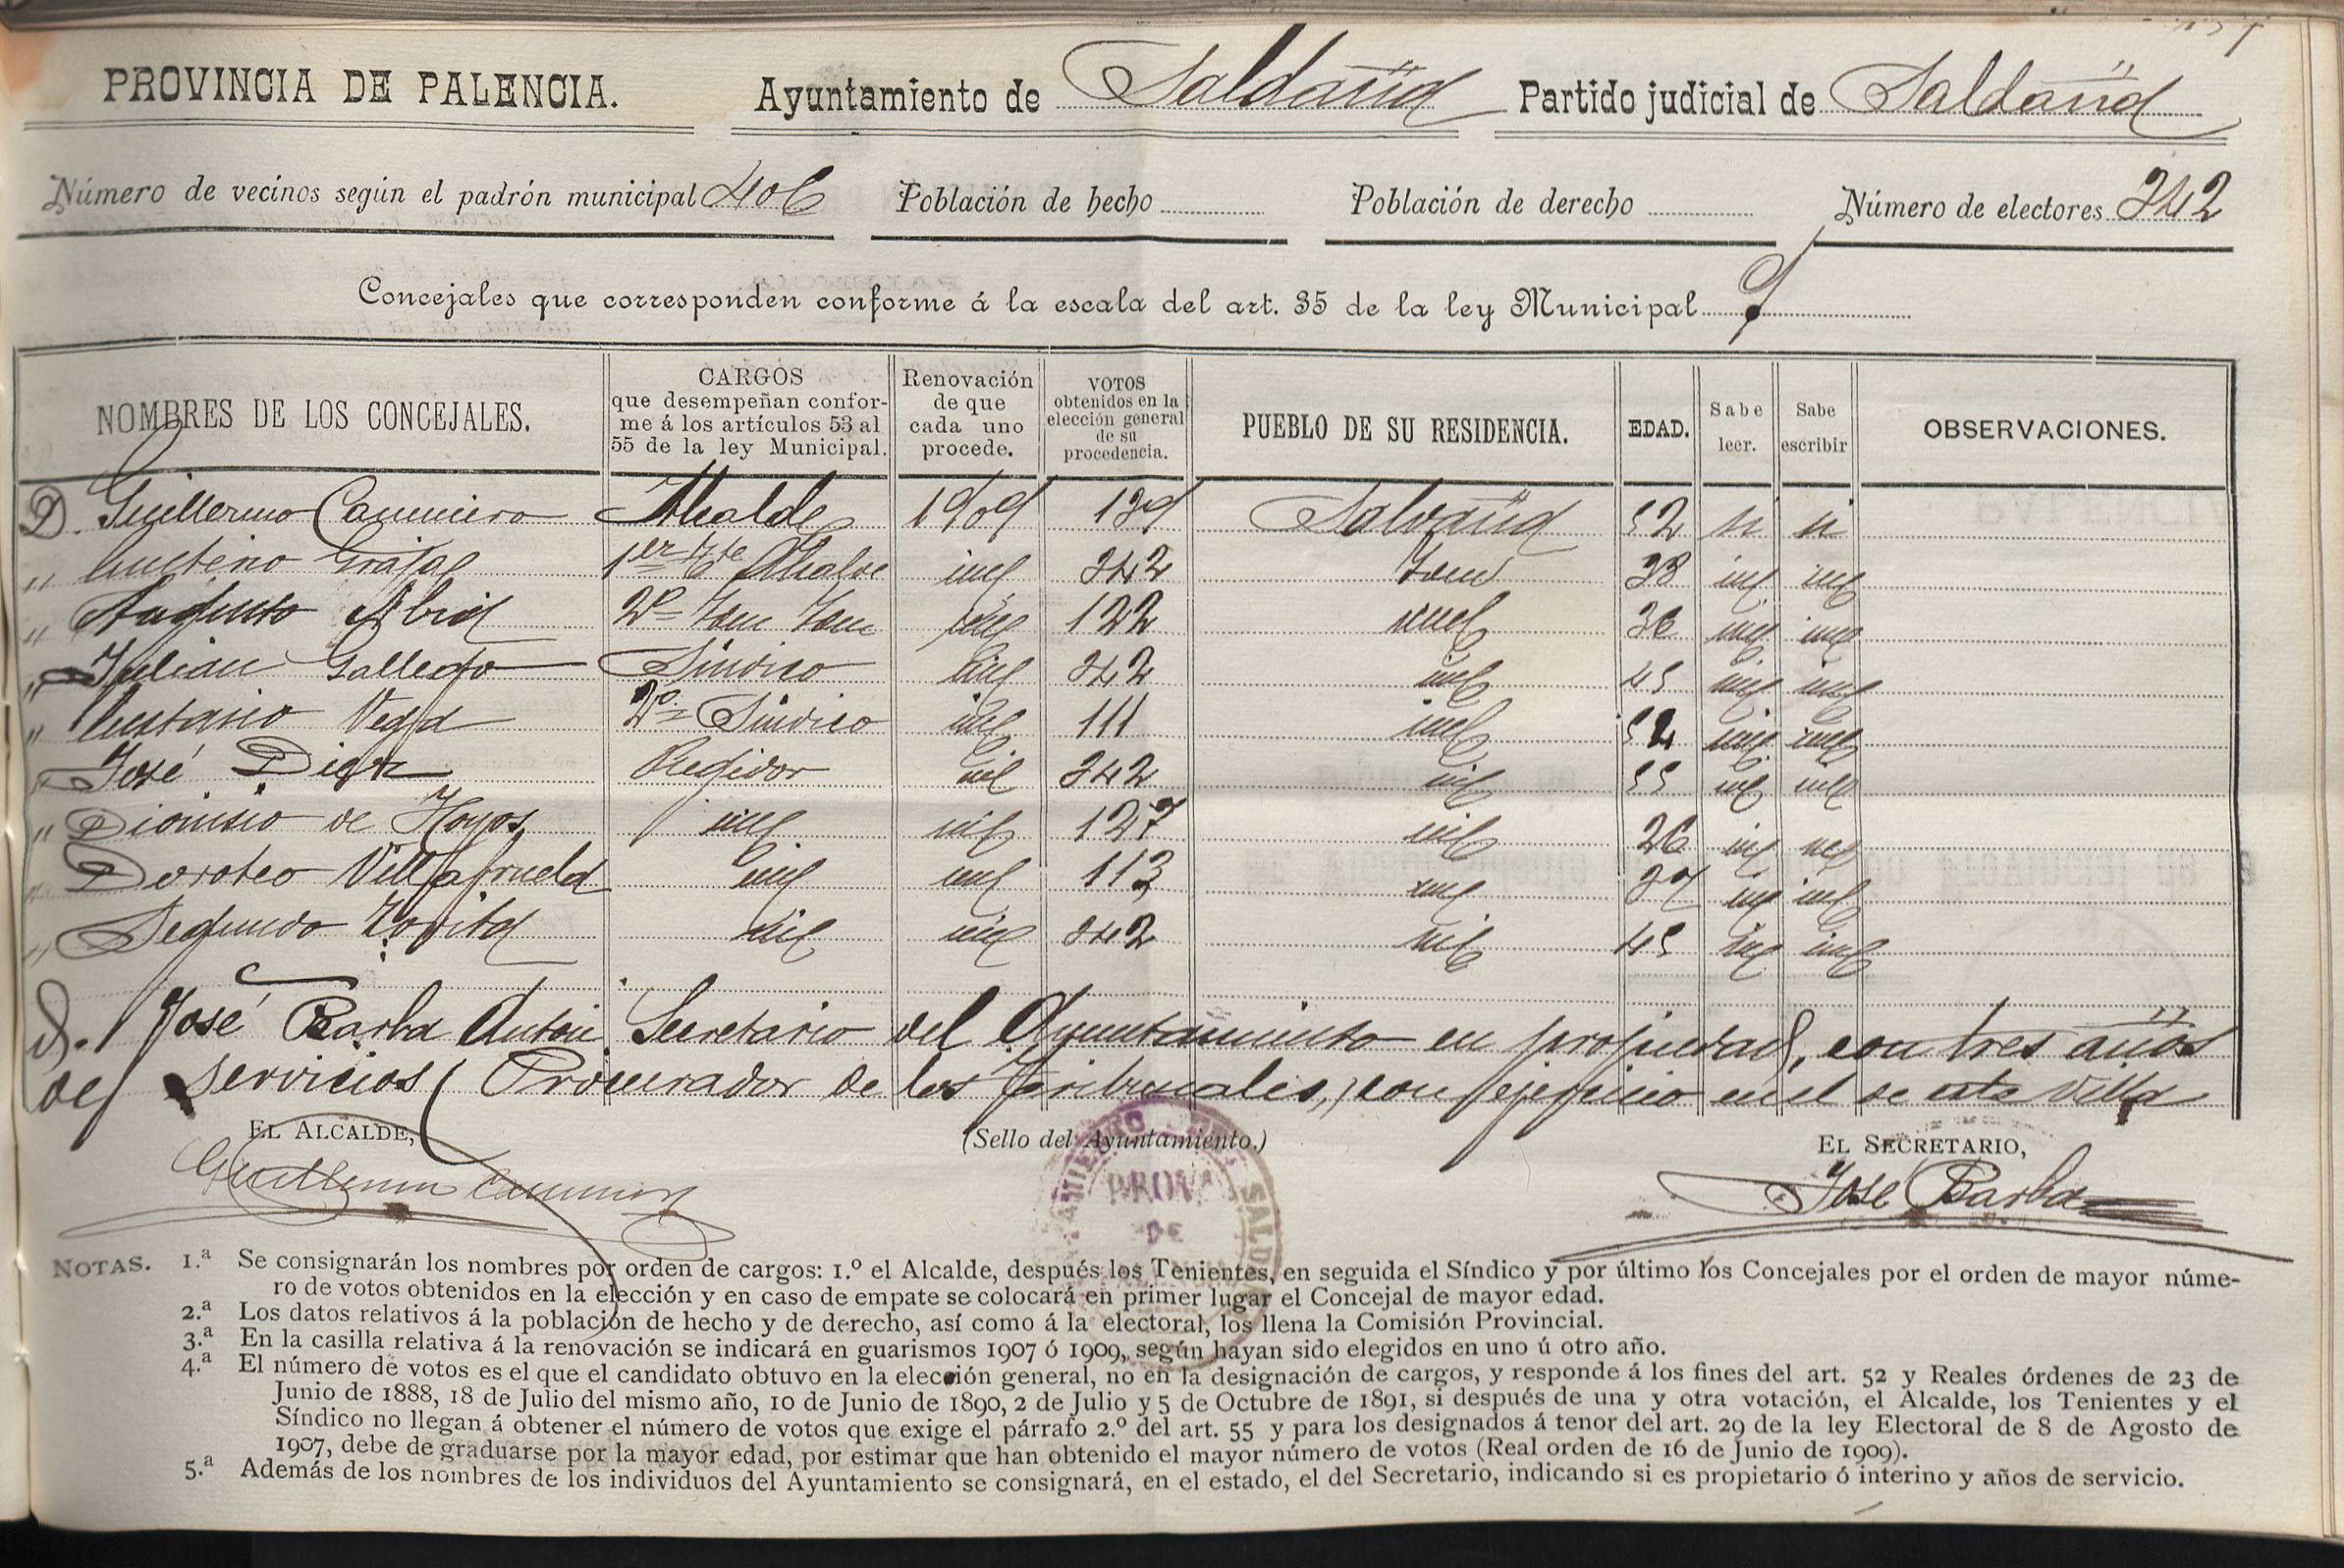 PROVINCIA DE PALENCIA. Ayuntamiento de Saldaña Partido judicial de Saldaña
Número de vecinos según el padrón municipal 406 Población de hecho Población de derecho Número de electores 342
Concejales que corresponden conforme á la escala del art. 35 de la ley Municipal 9
NOMBRES DE LOS CONCEJALES. CARGOS que desempeñan conforme á los artículos 53 al 55 de la ley Municipal. Renovación de que cada uno procede. VOTOS obtenidos en la elección general de su procedencia. PUEBLO DE SU RESIDENCIA. EDAD. Sabe leer. Sabe escribir OBSERVACIONES.
D. Guillermo Casimiro Alcalde 1909 139 Saldaña 52 si si
" Grajal 1er Tte Alcalde 342 38
" Augusto Abia 2º 122 36
" Julian Gallego Sindico 342 45
" Eustasio Vega 2º Sindico 111
" José Diez Regidor 342 55
" Dionisio de Hoyos 127 26
" Doroteo Villafruela 113
" Segundo Zorita 342 45
D. José Barba Anton Secretario del Ayuntamiento en propiedad, con tres años
de servicios (Procurador de los Tribunales,) con ejercicio en el de esta Villa
EL ALCALDE, (Sello del Ayuntamiento.) EL SECRETARIO,
Guillermo Casimiro José Barba
PROVA
DE
NOTAS. 1.ª Se consignarán los nombres por orden de cargos: 1.º el Alcalde, después los Tenientes, en seguida el Síndico y por último los Concejales por el orden de mayor núme-
ro de votos obtenidos en la elección y en caso de empate se colocará en primer lugar el Concejal de mayor edad.
2.ª Los datos relativos á la población de hecho y de derecho, así como á la electoral, los llena la Comisión Provincial.
3.ª En la casilla relativa á la renovación se indicará en guarismos 1907 ó 1909, según hayan sido elegidos en uno ú otro año.
4.ª El número de votos es el que el candidato obtuvo en la elección general, no en la designación de cargos, y responde á los fines del art. 52 y Reales órdenes de 23 de
Junio de 1888, 18 de Julio del mismo año, 10 de Junio de 1890, 2 de Julio y 5 de Octubre de 1891, si después de una y otra votación, el Alcalde, los Tenientes y el
Síndico no llegan á obtener el número de votos que exige el párrafo 2.º del art. 55 y para los designados á tenor del art. 29 de la ley Electoral de 8 de Agosto de
1907, debe de graduarse por la mayor edad, por estimar que han obtenido el mayor número de votos (Real orden de 16 de Junio de 1909).
5.ª Además de los nombres de los individuos del Ayuntamiento se consignará, en el estado, el del Secretario, indicando si es propietario ó interino y años de servicio.